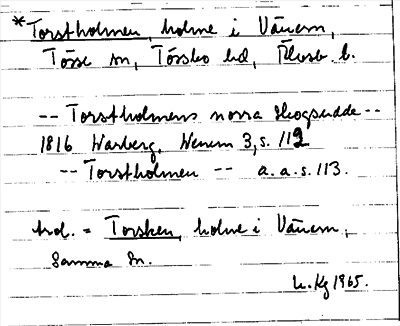 *Torstholmen, holme i Vänern,
Tösse sn, Tössbo hd, Älvsb. l.
-- Torstholmens norra Skogsudde --
1816 Warberg, Wenern 3, s. 112
-- Torstholmen -- a.a.s. 113.
= Torsken, holme i Vänern,
Samma sn.
Kg 1965.